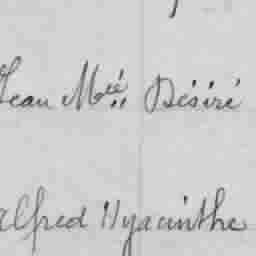 Jean M.ie Désiré
Alfred Hyacinthe